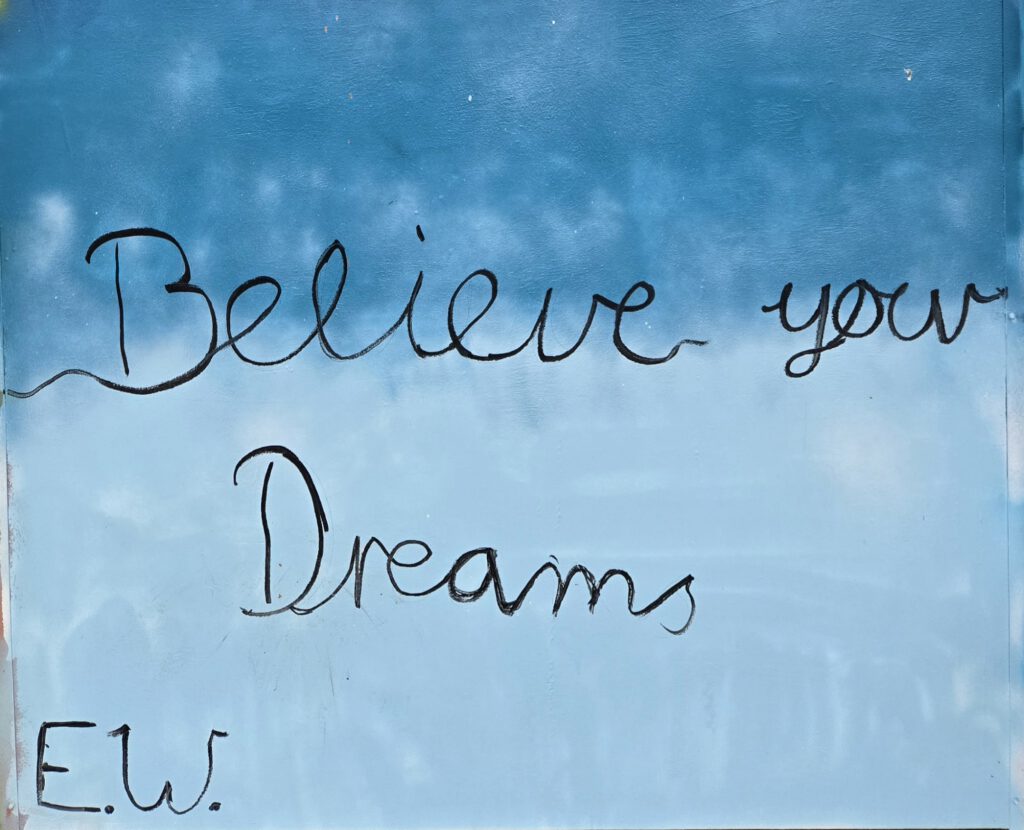 Believe your
Dreams
E.W.